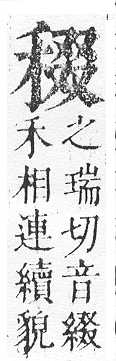 之瑞切音綴
禾相連續貌